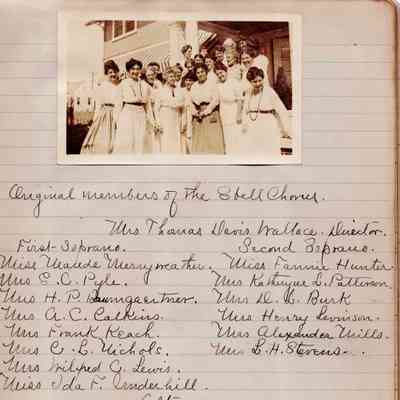 Original members of the Ebell Chorus.
Mrs Thomas Davis Wallace. Director.
First-Soprano. Second Soprano.
Miss Maude Merryweather. Miss Fannie Hunter
Mrs E. C. Pyle. Mrs Kathryne L. Patterson
Mrs H. P. Baumgaertner. Mrs D. G. Burk
Mrs A. C. Calkins. Mrs Henry Levinson.
Mrs Frank Keach. Mrs Alexander Mills.
Mrs C. L. Nichols. Mrs L. H. Stevens.
Mrs Wilfred G. Lewis.
Miss Ida F. Underhill.